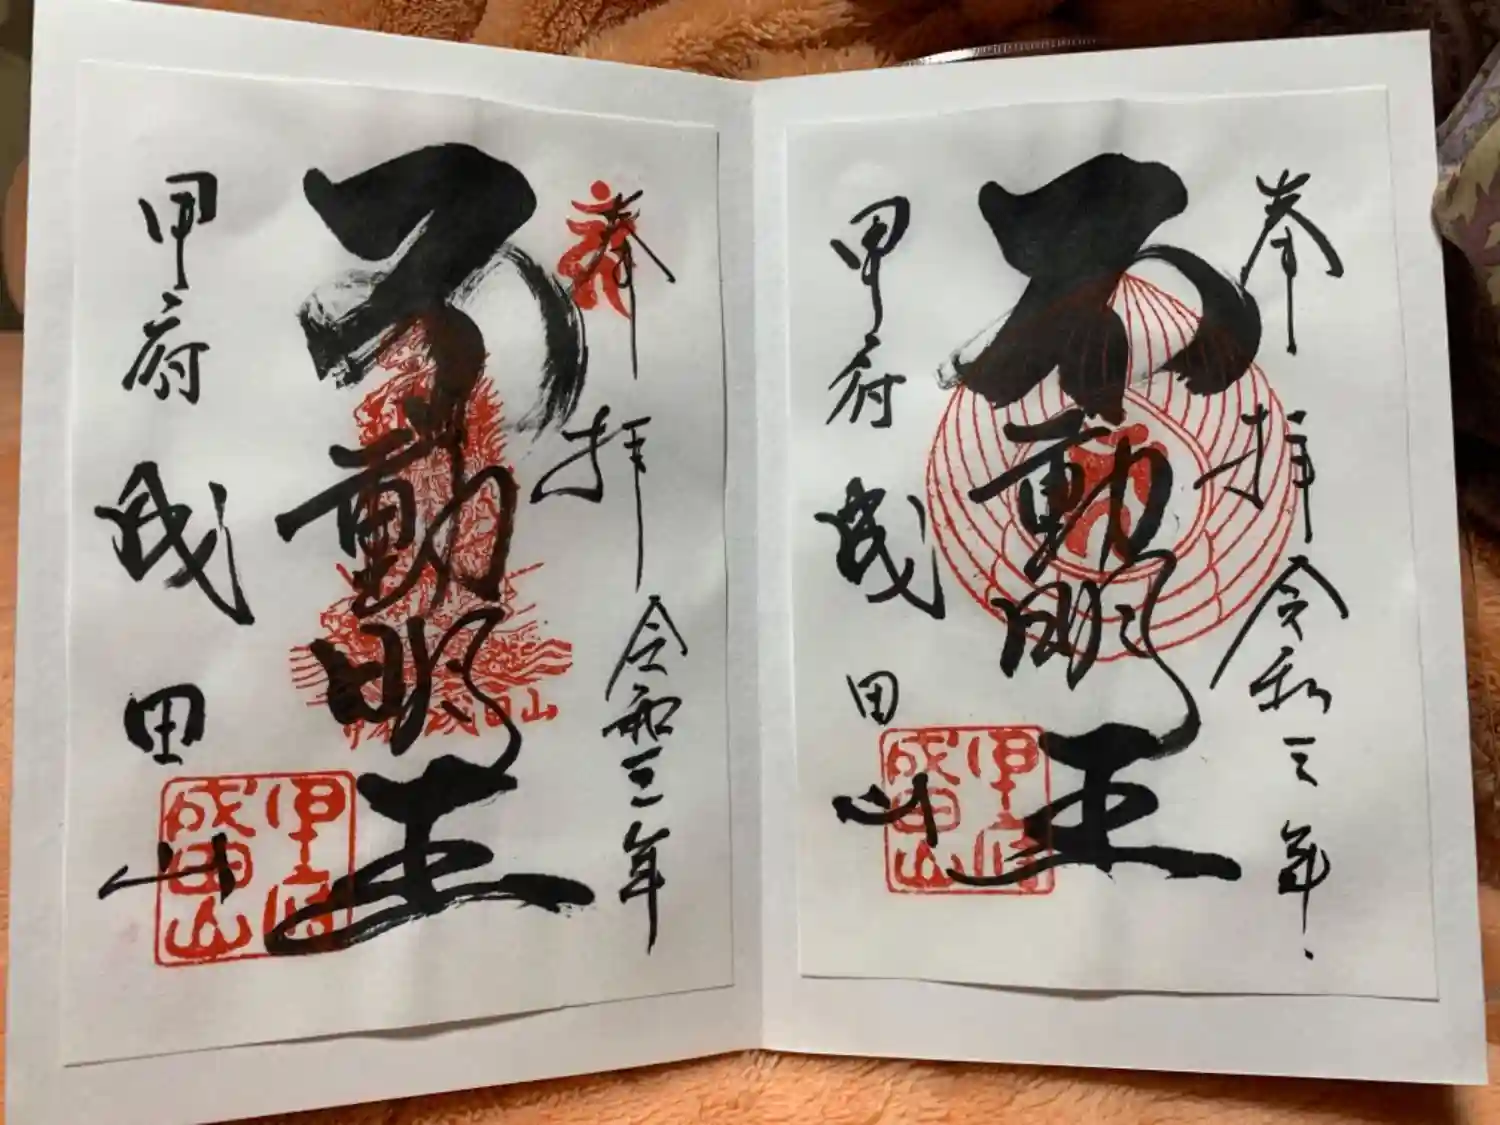 奉拝 令和三年
不動明王
甲府 成田山
甲府成田山
奉拝 令和三年
不動明王
甲府 成田山
成田山
甲府成田山